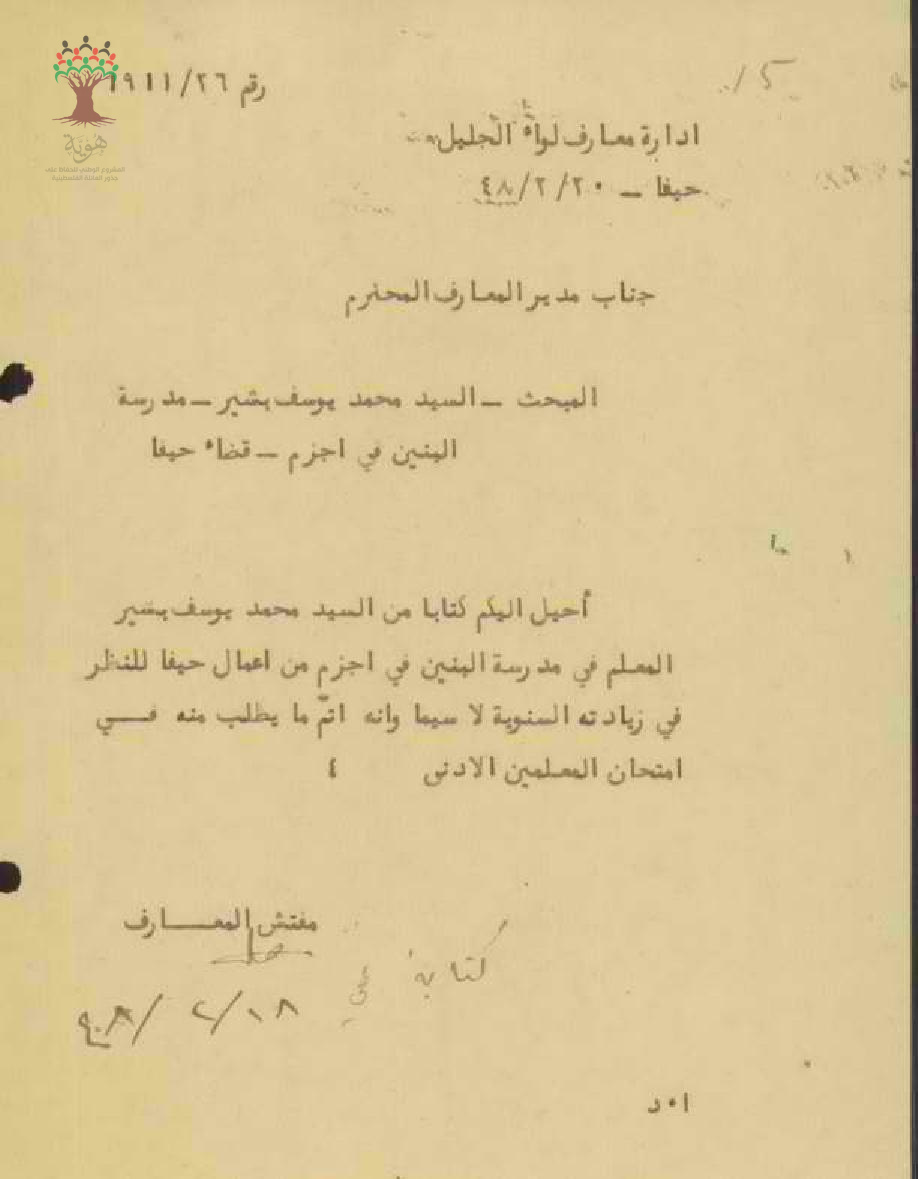 رقم ١٩١١/٢٦
ادارة معارف لواء الجليل
حيفا – ٤٨/٢/٢٠
هوية
المشروع الوطني للحفاظ على
جذور العائلة الفلسطينية
جناب مدير المعارف المحترم
المبحث – السيد محمد يوسف بشير – مدرسة
البنين في اجزم – قضاء حيفا
أحيل اليكم كتابا من السيد محمد يوسف بشير
المعلم في مدرسة البنين في اجزم من اعمال حيفا للنظر
في زيادته السنوية لا سيما وانه اتمّ ما يطلب منه في
امتحان المعلمين الادنى ٤
مفتش المعارف
كتابه في
ا٠د